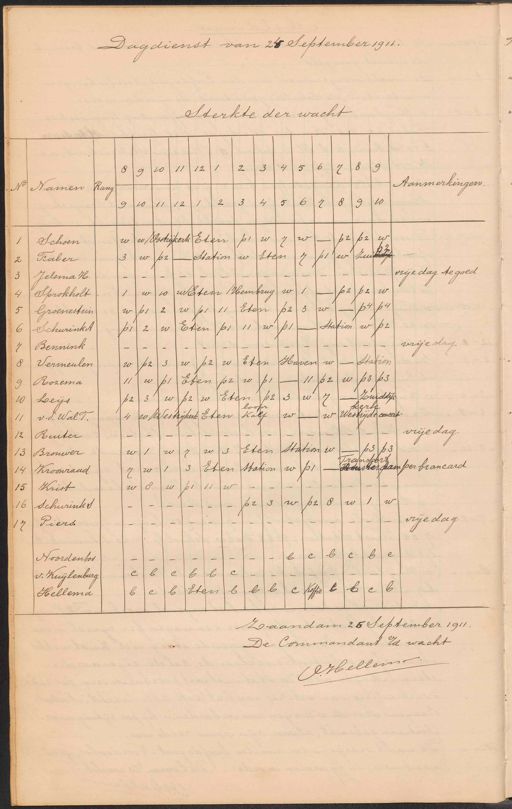 Dagdienst van 25 September 1911.
Sterkte der wacht
No Namen Rang 8 9 10 11 12 1 2 3 4 5 6 7 8 9 Aanmerkingen
9 10 11 12 1 2 3 4 5 6 7 8 9 10
1 Schoen w w Eten p1 w 7 w — p2 p2 w
2 Faber 3 w p2 — Station w Eten 7 p1 w
3 Jelema H - - - - - - - - - - - - - vrije dag te goed
4 Sprokholt 1 w 10 w Eten Hembrug w 1 — p2 p2 w
5 Groenestein w p1 2 w p1 11 Eten p2 3 w — p4 p4
6 Schurink A p1 2 w Eten p1 11 w p1 — Station w p2
7 Bennink - - - - - - - - - - - - - vrije dag
8 Vermeulen w p2 3 w p2 w Eten Haven w — Station
9 Rozema 11 w p1 Eten p2 w p1 — 11 p2 w p3 p3
10 Leijs p2 3 w p2 w Eten p2 3 w 7 —
11 v.d. Wal T. 4 10 Eten Kalf w — w
12 Ruiter - - - - - - - - - - - - - vrije dag
13 Brouwer w 1 w 7 w 3 Eten Station w — p3 p3
14 Kroonraad 7 w 1 3 Eten Station w p1 — Transport per brancard
15 Krist w 8 w p1 11 w - - - - - - -
16 Schurink S - - - - - - p2 3 w p2 8 w 1 w
17 Piers - - - - - - - - - - - - - vrije dag
Noordenbos - - - - - - - - b c b c b c
v. Kuijlenburg c b c b b c - - - - - - - -
Hellema b c b Eten b b b c Koffie b b c b
Zaandam 25 September 1911.
De Commandant v/d wacht
Hellema